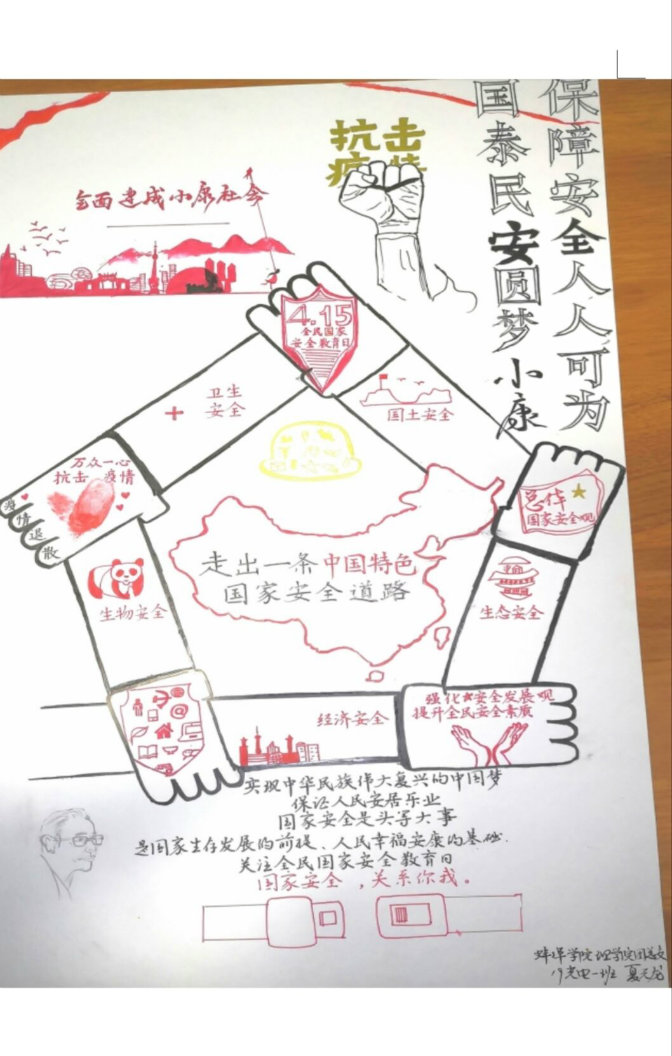 保障安全人人可为
国泰民安圆梦小康
抗击
全面建成小康社会
4.15
全民国家
安全教育日
卫生
安全
国土安全
万众一心
抗击 疫情
疫情退散
总体
国家安全观
走出一条中国特色
国家安全道路
生物安全
生态安全
经济安全
强化大安全发展观
提升全民安全素质
实现中华民族伟大复兴的中国梦
保证人民安居乐业
国家安全是头等大事
是国家生存发展的前提、人民幸福安康的基础.
关注全民国家安全教育日
国家安全,关系你我。
蚌埠学院 理学院团总支
19光电一班